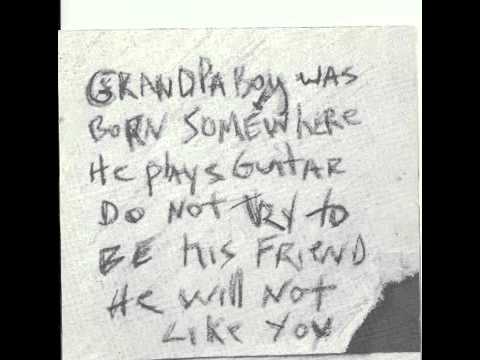 GRANDPABOY WAS
BORN SOMEWHERE
He plays GuitAR
DO NOT TRY to
BE his FRiEND
He Will NOt
LiKe YOU